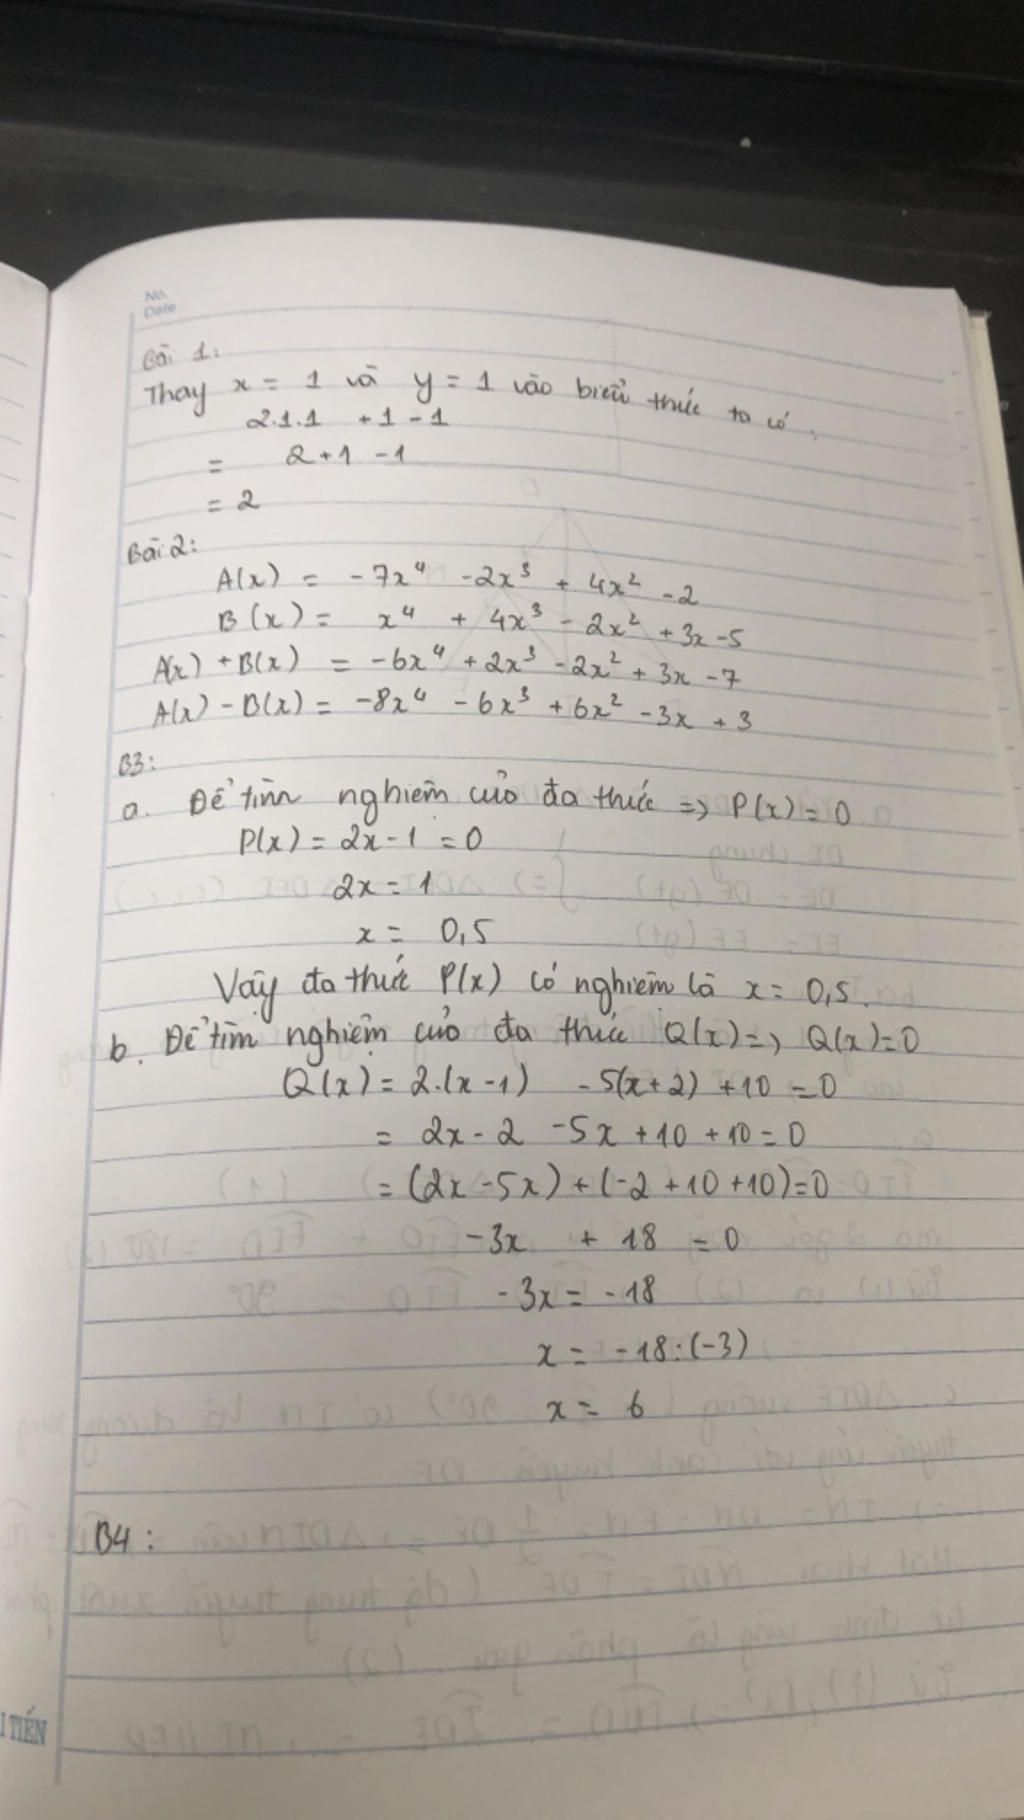 No.
Date
Bài 1:
Thay x = 1 và y = 1 vào biểu thức ta có:
2.1.1 + 1 - 1
= 2 + 1 - 1
= 2
Bài 2:
A(x) = -7x⁴ - 2x³ + 4x² - 2
B(x) = x⁴ + 4x³ - 2x² + 3x - 5
A(x) + B(x) = -6x⁴ + 2x³ - 2x² + 3x - 7
A(x) - B(x) = -8x⁴ - 6x³ + 6x² - 3x + 3
B3:
a. Để tìm nghiệm của đa thức => P(x) = 0
P(x) = 2x - 1 = 0
2x = 1
x = 0,5
Vậy đa thức P(x) có nghiệm là x = 0,5.
b. Để tìm nghiệm của đa thức Q(x) => Q(x) = 0
Q(x) = 2.(x - 1) - 5(x + 2) + 10 = 0
= 2x - 2 - 5x + 10 + 10 = 0
= (2x - 5x) + (-2 + 10 + 10) = 0
-3x + 18 = 0
-3x = -18
x = -18 : (-3)
x = 6
B4:
TIẾN